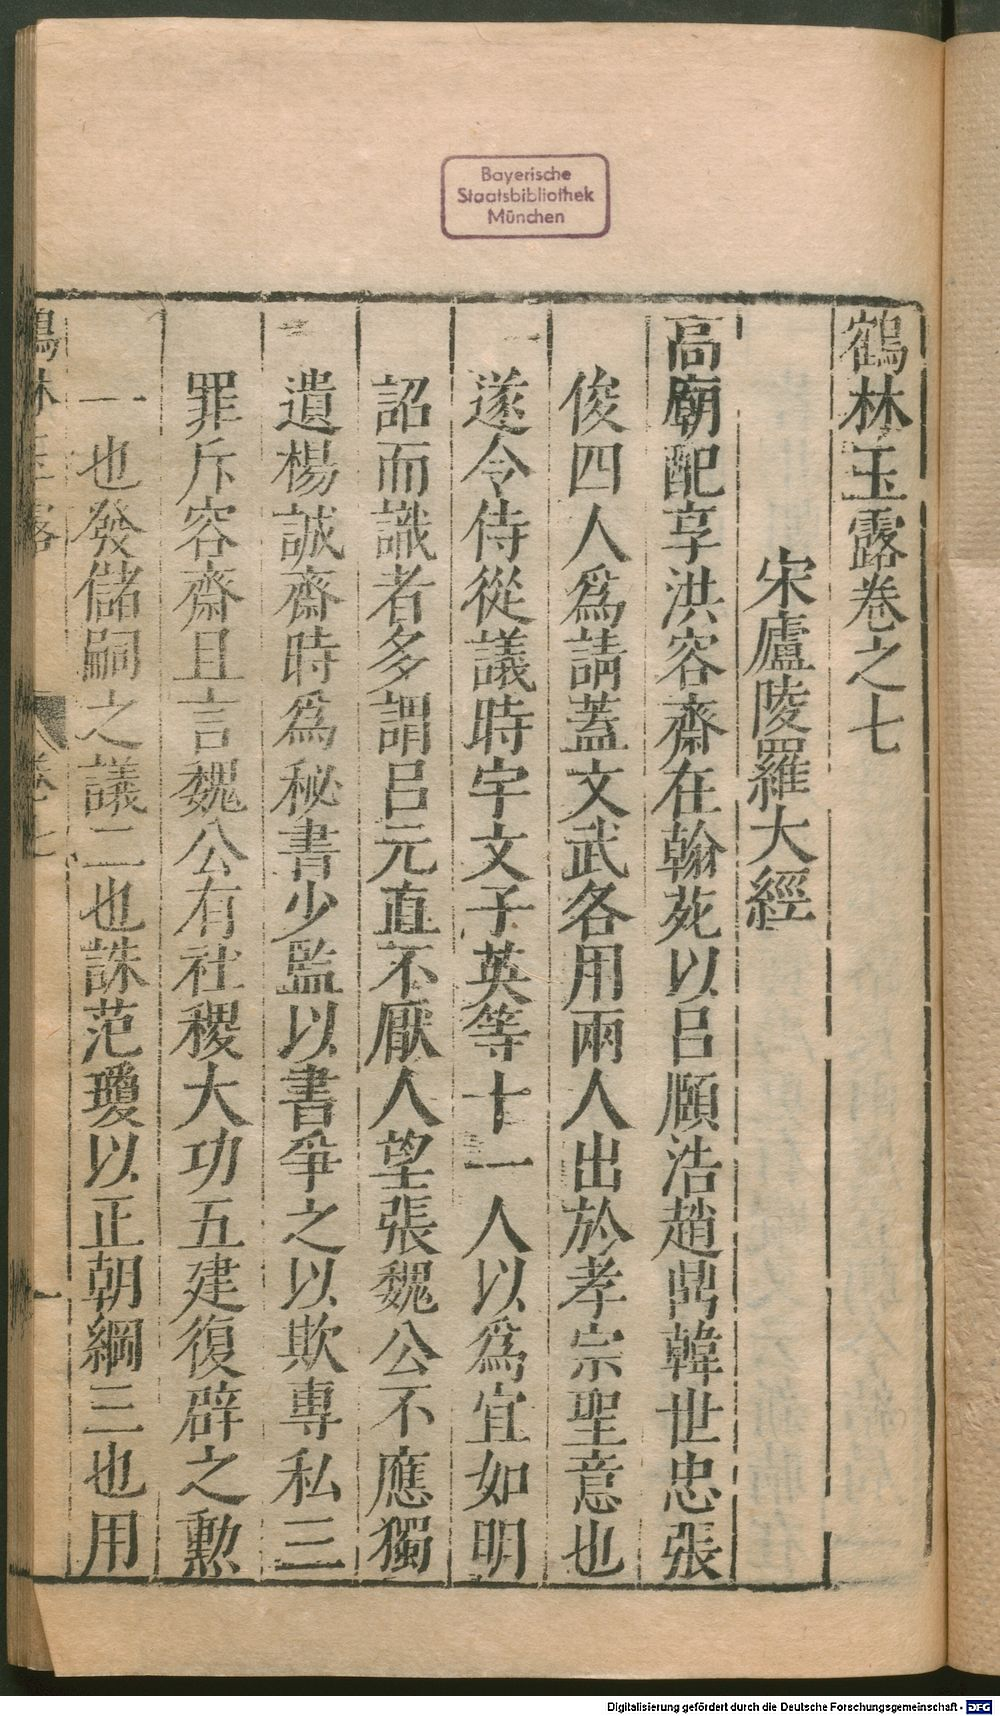 Bayerische
Staatsbibliothek
München
鶴林玉露卷之七
宋廬陵羅大經
高廟配享洪容齋在翰苑以呂頤浩趙鼎韓世忠張
俊四人爲請蓋文武各用兩人出於孝宗聖意也
遂令侍從議時宇文子英等十一人以爲宜如明
詔而識者多謂呂元直不厭人望張魏公不應獨
遺楊誠齋時爲秘書少監以書爭之以欺專私三
罪斥容齋且言魏公有社稷大功五建復辟之勲
一也發儲嗣之議二也誅范瓊以正朝綱三也用
鶴林玉露
卷七
一
Digitalisierung gefördert durch die Deutsche Forschungsgemeinschaft - DFG